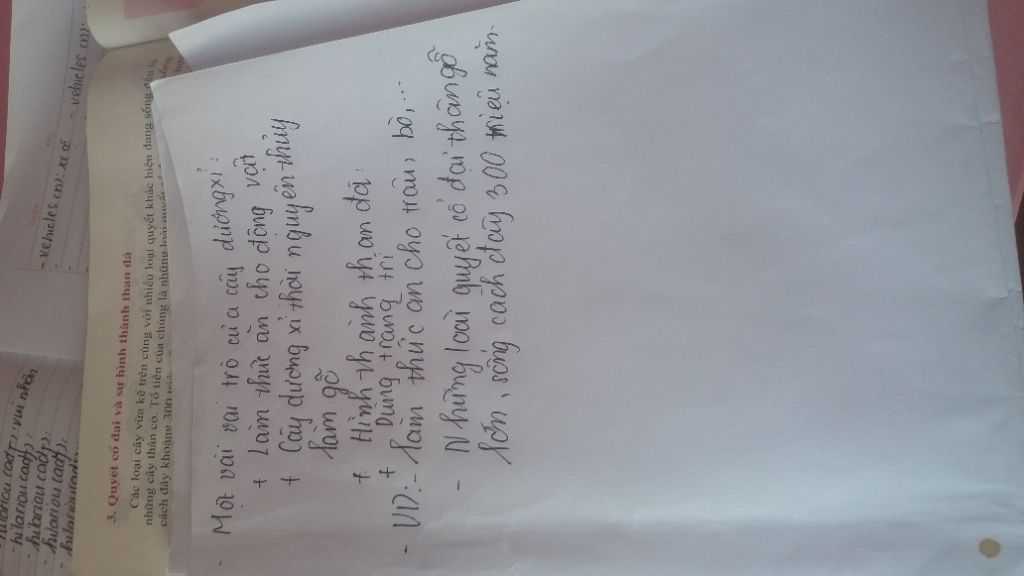 - vehicles (n): xe cộ
- vehicles (n):
- hilariou (adj): vui nhộn
- hilariou (adj):
- hilariou (adj):
- hilariou (adj):
- hilariou (adj):
3. Quyết cổ đại và sự hình thành than đá
Các loại cây vừa kể trên cùng với nhiều loại quyết khác hiện đang sống đều là
những cây thân cỏ. Tổ tiên của chúng là những loài quyết
cách đây khoảng 300
- Một vài vai trò của cây dương xỉ:
+ Làm thức ăn cho động vật
+ Cây dương xỉ thời nguyên thủy
làm gỗ
+ Hình thành than đá:
+ Dùng trang trí
- VD: - làm thức ăn cho trâu, bò,...
- Những loài quyết cổ đại thân gỗ
lớn, sống cách đây 300 triệu năm.